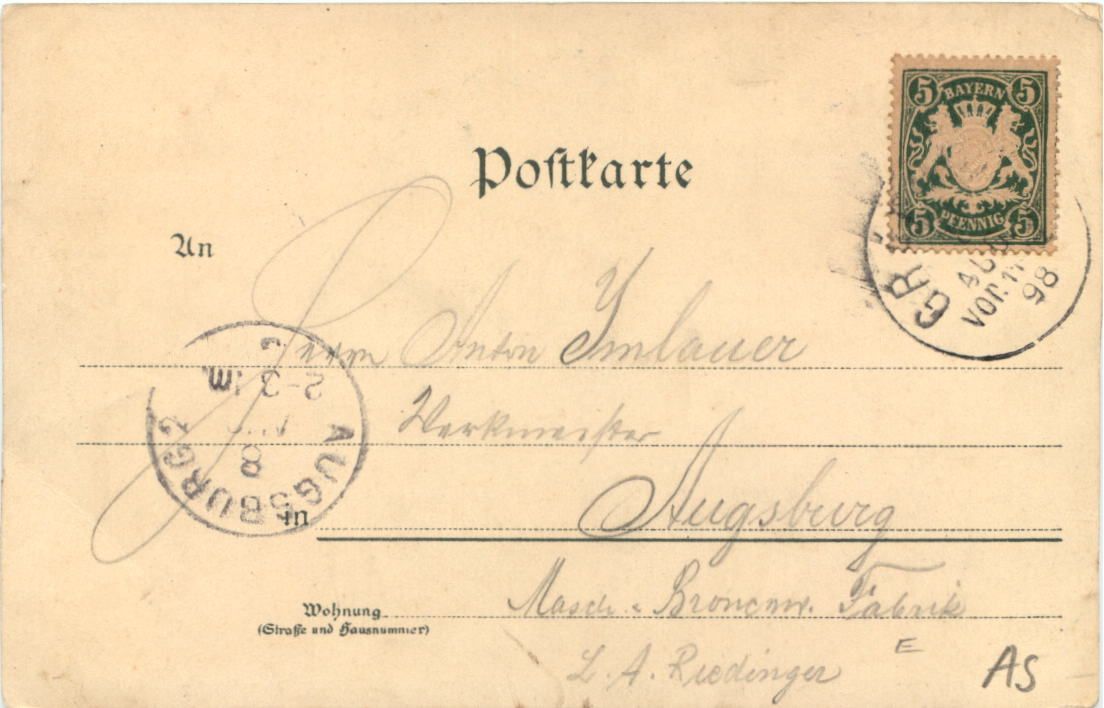 5 BAYERN 5
5 PFENNIG 5
Postkarte
GR
VOR. 11
98
An
Herrn Anton Imlauer
2-3
8
AUGSBURG 2
Werkmeister
in Augsburg
Wohnung
(Strasse und Hausnummer)
Masch. u. Broncew. Fabrik
L. A. Riedinger
E
AS